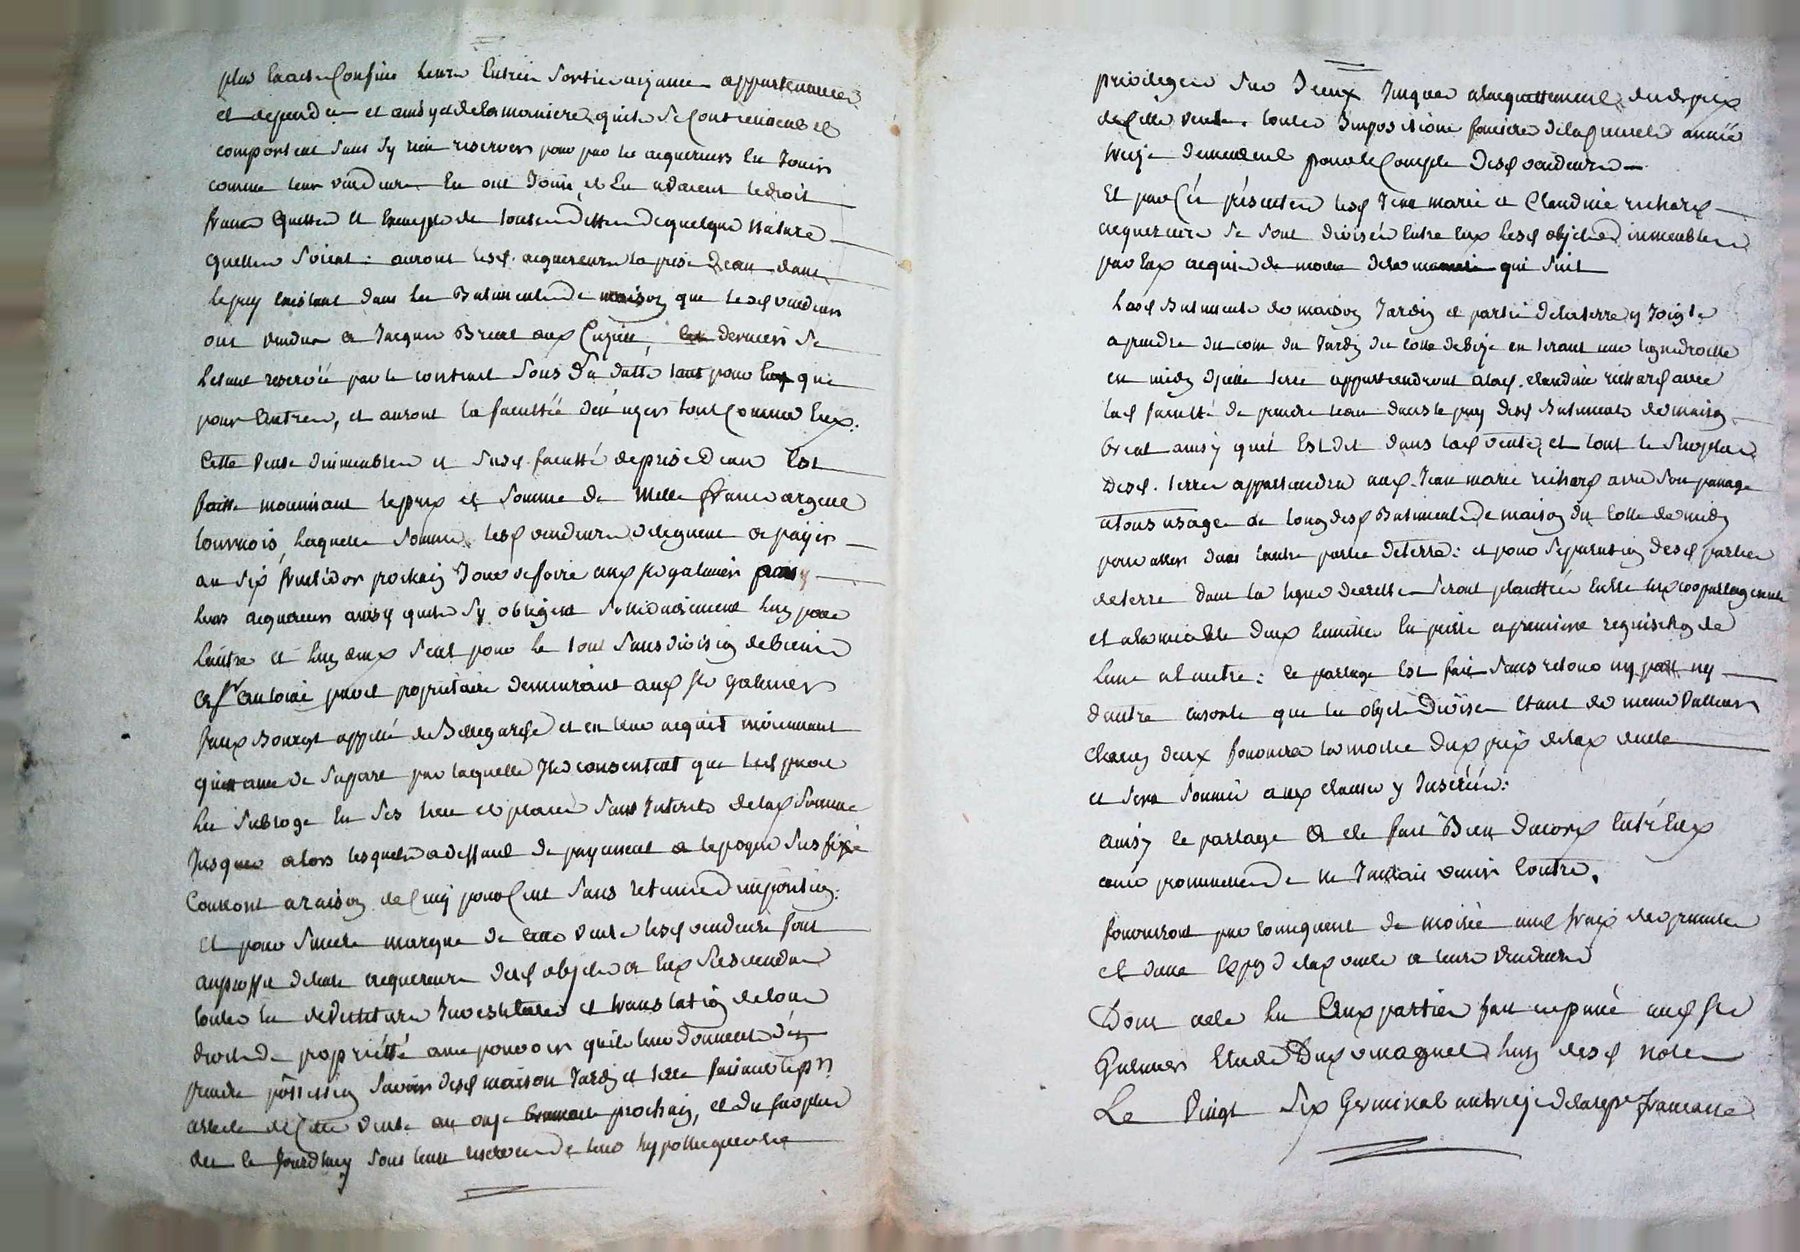 plus exacts confins leurs entrées sorties aizances appartenances
et dependces et ainsy et de la maniere qu'ils se contiennent et
comportent sans s'y rien reserver pour par les acquereurs en jouir
comme leur vendeurs en ont joui et en avaient le droit
francs quittes et exempts de toutes dettes de quelque nature
quelles soient: auront lesd. acquereurs la prise d'eau dans
le puy existant dans les Batiments de maison que lesd vendeurs
ont vendu a Jacques Breat aux ces derniers se
letant reservée par le contrat sous sa datte tant pour eux que
pour autres, et auront la facultée d'en user tout comme eux.
Cette vente d'immeubles et susd. faculté de prise d'eau est
faitte moienant le prix et somme de mille francs argent
tournois, laquelle somme lesd vendeurs deleguent a payer
au six fructidor prochain jour de foire aud st galmier
leurs acquereurs ainsy qu'ils s'y obligent solidairement l'un pour
l'autre et l'un d'eux seul pour le tout sans division de biens
a sr antoine proprietaire demeurant aud st galmier
faux Bourgt appellé de Bellegarde et en leur acquit moienant
quittance de sa part par laquelle ils consentent que led
les subroge en ses lieu et place sans interets de lad somme
jusques alors lesquels a deffaut de payement a l'epoque sus fixée
couront a raison de cinq pour cent sans retenue d'imposition:
et pour sincere marque de cette vente lesd vendeurs font
au proffit de leurs acquereurs desd objets a eux desvendus
toutes les devettiture investiture et translation de tous
droits de propriétté avec pouvoir qu'ils leur donnent d'en
prendre possession savoir desd maison jardin et terre faisant le pr
article de cette vente au onze brumaire prochain, et du surplus
des le jourdhuy sous leurs reserves de leur hypotheque et
privileges sur iceux jusques a lacquittement dud prix
de cette vente. toutes impositions foncieres de la presente année
treize demeurent pour le compte desd vendeurs
Et par ces presentes lesd Jean marie et Claudine richard
acquereurs se sont divisés entre eux lesd objets immeubles
par eux acquis de moitie de la maniere qui suit
Lesd Batiments de maison Jardin et partie de la terre y joigte
a prendre du coin du Jardin du cotte de bize en tirant une ligne droitte
en midy d'jcelle terre appartiendront a lad. claudine richard avec
lad faculté de prendre leau dans le puy desd Batiments de maison
breat ainsy quil est dit dans lad vente, et tout le surplus
desd. terre appartiendra aud. Jean marie richard avec son passage
a tous usages le long desd Batiments de maison du cotte de midy
pour aller dans lautre partie de terre: et pour separation desd parties
de terre dans la ligne seront plantées entre les copartageants
et a lamiable deux limittes en pierre a premiere requisition de
lune a l'autre: ce partage est fait sans retour ny part ny
d'autre ensorte que les objets Divisés etant de meme valleur
chacun d'eux fournira la moitié dud prix de lad vente
et sera soumis aux clauses y inserées:
ainsy le partage a ete fait bien d'accord entre eux
avec promesse de ne jamais venir contre.
fourniront par consequent de moitié aux fraix des presentes
et dune expon de lad vente a leurs vendeurs
Dont acte les parties fait et passé aud st
Galmier Etude Dupuy magnet l'un desd notes
Le Vingt six Germinal an treize de la repe francaise